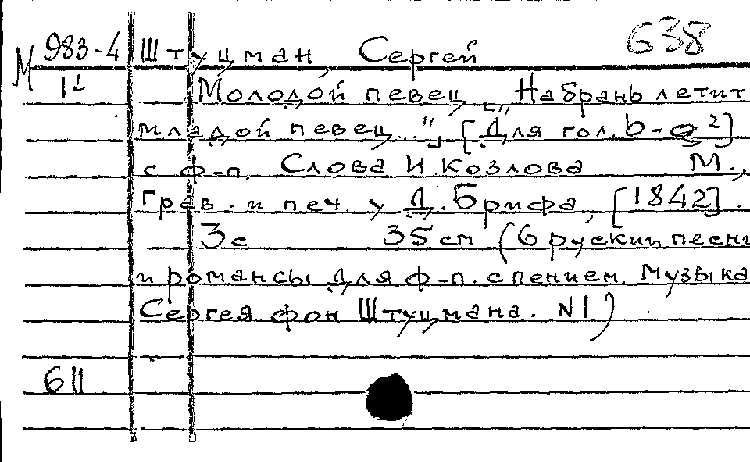 638
М 983-4 Штуцман, Сергей
1<u>1</u> Молодой певец. [„На брань летит
младой певец..."] [Для гол. b-g²]
с ф-п. Слова И. Козлова М.,
Грав. и печ. у Д. Брифа, [1842].
3с 35 cm (6 руских песни
и романсы для ф-п. с пением. Музыка
Сергея фон Штуцмана. N1)
611